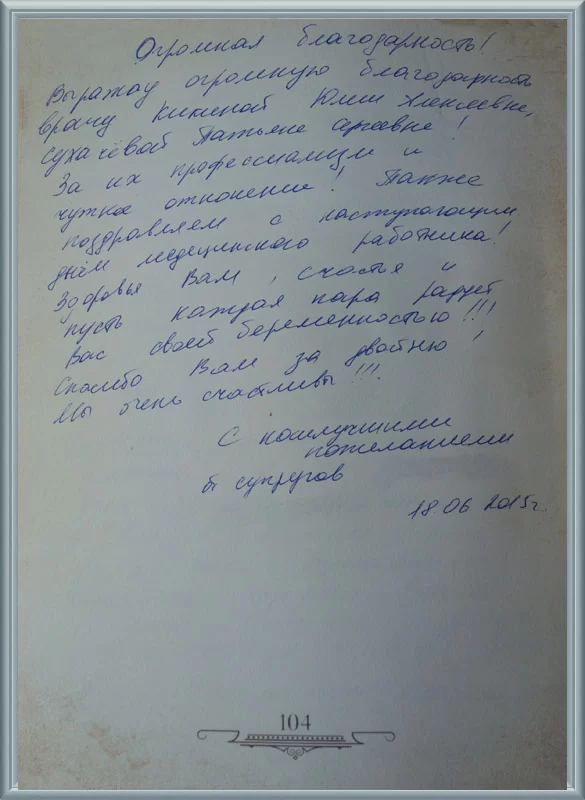 Огромная благодарность!
Выражаю огромную благодарность
врачу Кикиной Юлии Алексеевне,
Сухачёвой Татьяне Сергеевне!
За их профессионализм и
чуткое отношение! Также
поздравляем с наступающим
днём медецинского работника!
Здоровья Вам, счастья и
пусть каждая пара радует
Вас своей беременностью!!!
Спасибо Вам за двойню!
Мы очень счастливы!!!
С наилучшими
пожеланиями
от супругов
18.06 2015г.
104